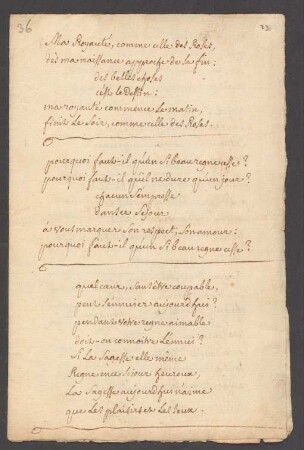 36
33
Ma Royauté, comme celle des Roses,
des ma naissance approche de sa fin:
des belles choses
c'est le Destin:
ma royauté commence le matin,
finit le Soir, comme celle des Roses.
pourquoi faut-il qu'un Si beau regne cesse?
pourquoi faut-il qu'il ne dure qu'un jour?
chacun S'empresse
dans ce Sejour
a vous marquer Son respect, Son amour:
pourquoi faut-il qu'un Si beau regne cesse?
quel coeur, Sans être coupable,
peut S'ennuier aujourd'hui?
pendant votre regne aimable
doit-on connoitre L'ennui?
Si La Sagesse elle même
Regne en ce Jour heureux,
La Sagesse aujourd'hui n'aime
que Les plaisirs et Les Jeux.